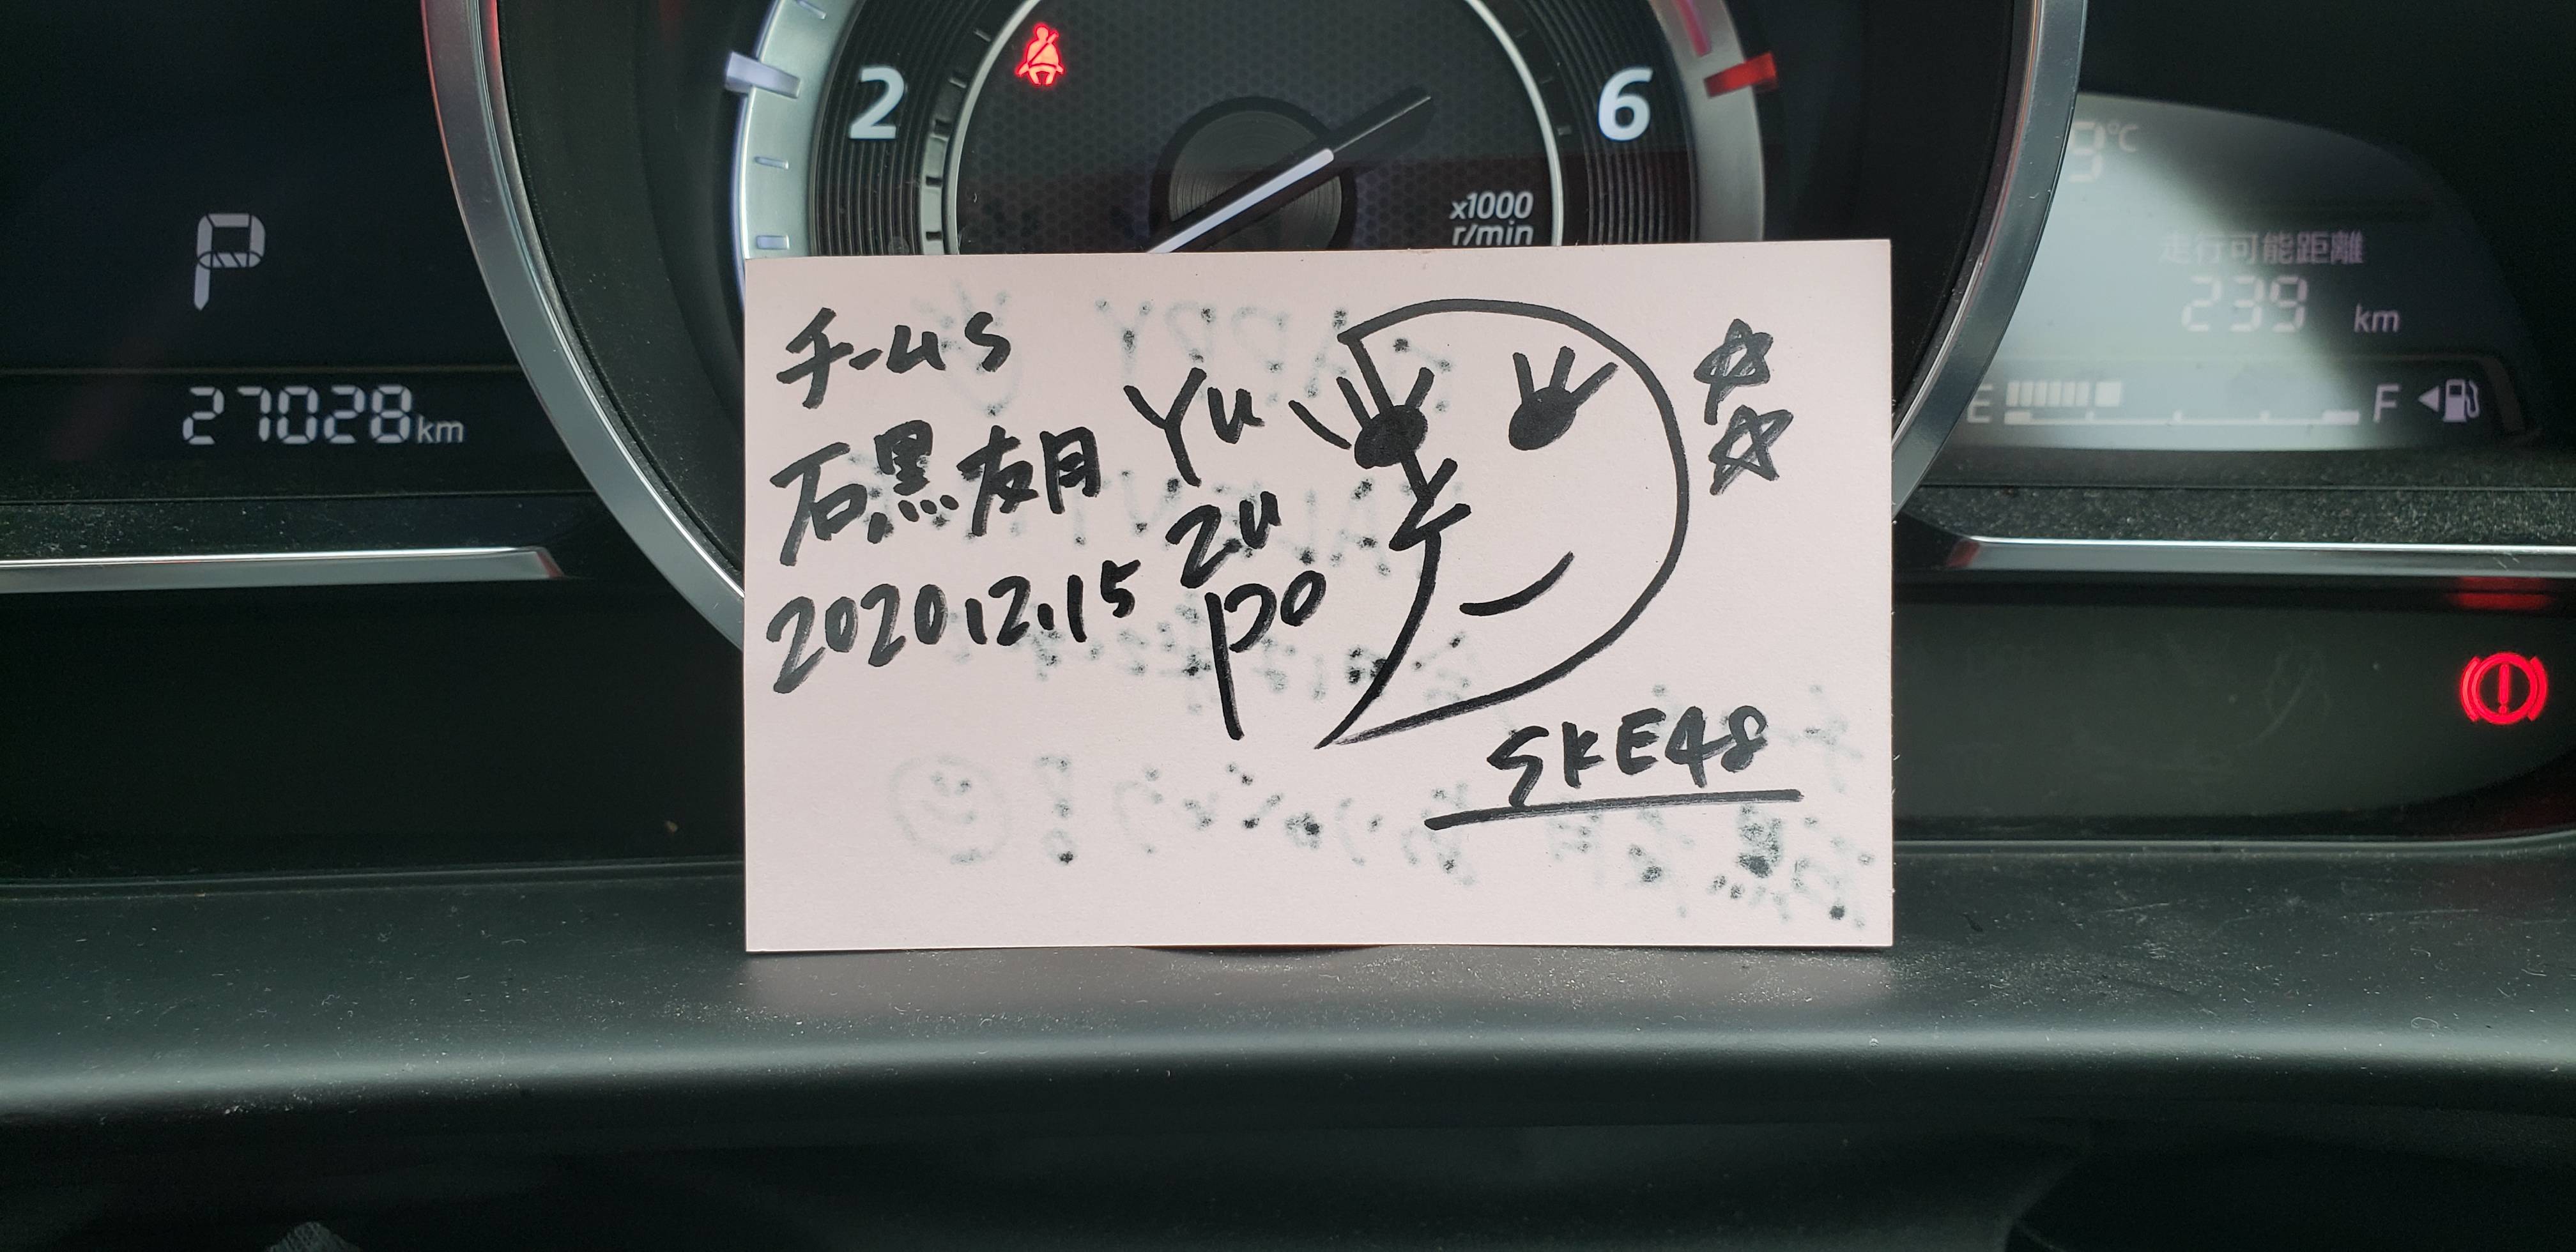 2
6
x1000
r/min
9°C
P
走行可能距離
239 km
27028km
E
F
チームS
石黒友月
2020.12.15
Yu
zu
po
SKE48